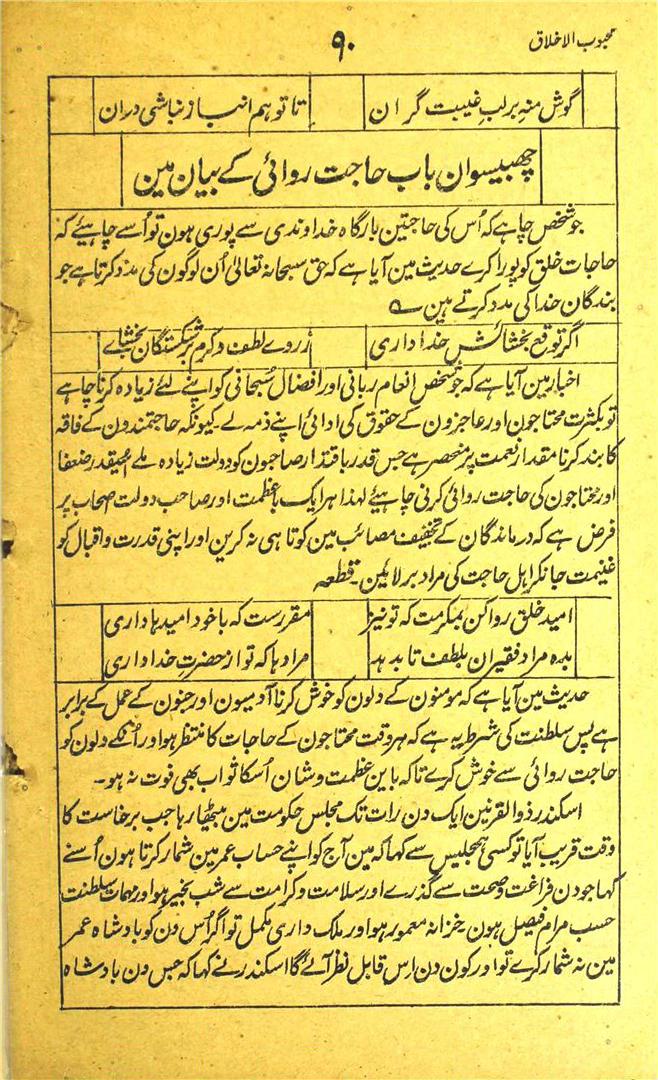 محبوب الاخلاق
۹۰
گوش منہ بر لب غیبت گران تا تو ہم انباز نباشی دران
چھبیسوان باب حاجت روائی کے بیان مین
جو شخص چاہے کہ اُس کی حاجتین بارگاہ خداوندی سے پوری ہون تو اُسے چاہیئے کہ
حاجات خلق کو پورا کرے حدیث مین آیا ہے کہ حق سبحانہ تعالیٰ اُن لوگون کی مدد کرتا ہے جو
بندگان خدا کی مدد کرتے ہین ؎
اگر توقع بخشائش خدا داری ز روے لطف و کرم بر شکستگان بخشاے
اخبار مین آیا ہے کہ جو شخص انعام ربانی اور افضال سُبحانی کو اپنے لئے زیادہ کرنا چاہے
تو بکثرت محتاجون اور عاجزون کے حقوق کی ادائی اپنے ذمہ لے۔ کیونکہ حاجتمندون کے فاقہ
کا بند کرنا مقدار نعمت پر منحصر ہے جس قدر با قتدار صاحبون کو دولت زیادہ ملے اُسیقدر ضعفا
اور محتاجون کی حاجت روائی کرنی چاہیئے لہذا ہر ایک با عظمت اور صاحب دولت اصحاب پر
فرض ہے کہ درماندگان کے تخفیف مصائب مین کوتاہی نہ کرین اور اپنی قدرت و اقبال کو
غنیمت جانکر اہل حاجت کی مراد بر لائین۔ قطعہ
امید خلق روا کن بمکرمت کہ تو نیز مقررست کہ با خود امیدہا داری
بدہ مراد فقیران بلطف تا بدہد مرادہا کہ تو از حضرتِ خدا داری
حدیث مین آیا ہے کہ مومنون کے دلون کو خوش کرنا آدمیون اور جنون کے عمل کے برابر
ہے پس سلطنت کی شرط یہ ہے کہ ہر وقت محتاجون کے حاجات کا منتظر ہو اور اُنکے دلون کو
حاجت روائی سے خوش کرے تاکہ باین عظمت و شان اُسکا ثواب بھی فوت نہ ہو۔
اسکندر ذوالقرنین ایک دن رات تک مجلس حکومت مین بیٹھا رہا جب برخاست کا
وقت قریب آیا تو کسی ہمجلیس سے کہا کہ مین آج کو اپنے حساب عمر مین شمار کرتا ہون اُسنے
کہا جو دن فراغت و صحت سے گذرے اور سلامت و کرامت سے شب بخیر ہو اور مہمات سلطنت
حسب مرام فیصل ہون۔ خزانہ معمور ہو اور ملک داری مکمل تو اگر اُس دن کو بادشاہ عمر
مین نہ شمار کرے تو اور کون دن اِس قابل نظر آئے گا اسکندر نے کہا کہ جس دن بادشاہ